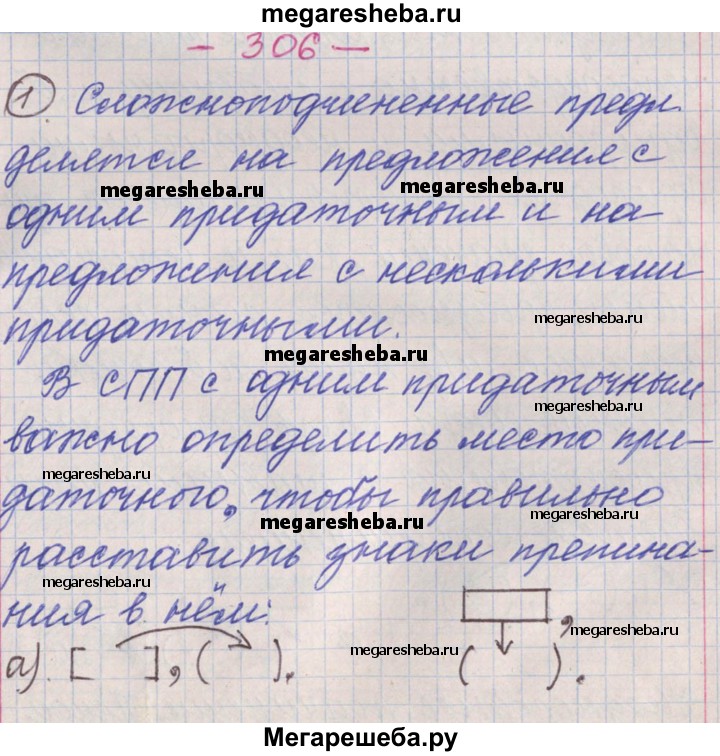 megaresheba.ru
— 306 —
1. Сложноподчиненные предл.
делятся на предложения с
megaresheba.ru megaresheba.ru
одним придаточным и на
предложения с несколькими
megaresheba.ru
придаточными.
megaresheba.ru
В СПП с одним придаточным
megaresheba.ru
важно определить место при-
megaresheba.ru
даточного, чтобы правильно
megaresheba.ru megaresheba.ru
расставить знаки препина-
megaresheba.ru
ния в нём:
megaresheba.ru
а). [ ], ( ). ( ).
megaresheba.ru megaresheba.ru
Мегарешеба.ру